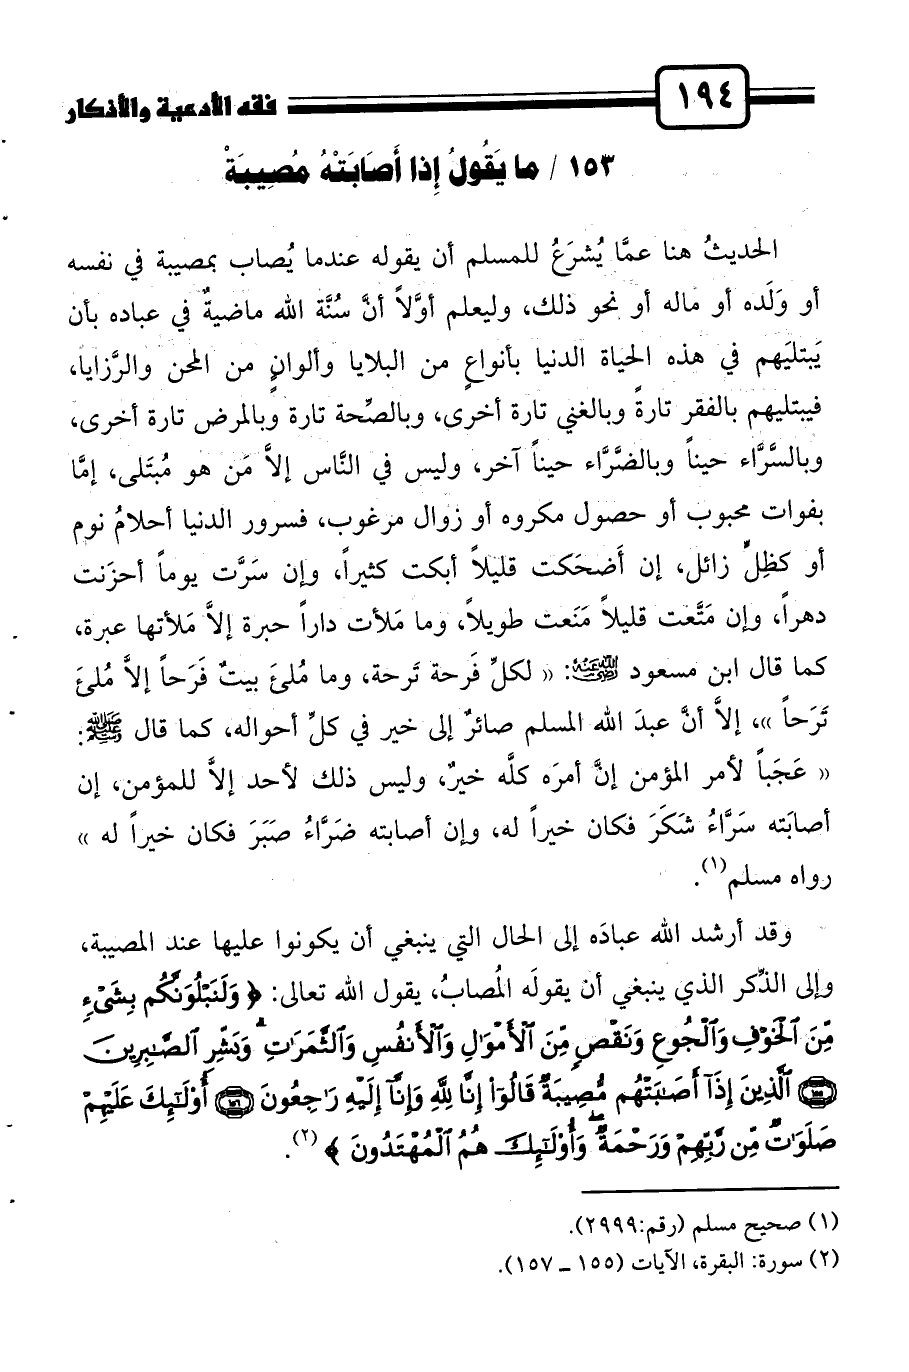 ١٩٤ فقه الأدعية والأذكار
١٥٣ / ما يَقُولُ إِذا أَصَابَتْهُ مُصِيبَةْ
الحديثُ هنا عمَّا يُشرَعُ للمسلم أن يقوله عندما يُصاب بمصيبة في نفسه
أو وَلَده أو ماله أو نحو ذلك، وليعلم أوَّلاً أنَّ سُنَّة الله ماضيةٌ في عباده بأن
يَبتليَهم في هذه الحياة الدنيا بأنواعٍ من البلايا وألوانٍ من المحن والرَّزايا،
فيبتليهم بالفقر تارةً وبالغني تارة أخرى، وبالصِّحة تارة وبالمرض تارة أخرى،
وبالسرَّاء حيناً وبالضرَّاء حيناً آخر، وليس في النَّاس إلاَّ مَن هو مُبتَلى، إمَّا
بفوات محبوب أو حصول مكروه أو زوال مرغوب، فسرور الدنيا أحلامُ نوم
أو كظِلٍّ زائل، إن أَضحَكت قليلاً أبكت كثيراً، وإن سَرَّت يوماً أحزَنت
دهراً، وإن مَتَّعت قليلاً مَنَعت طويلاً، وما مَلأت داراً حبرة إلاَّ مَلأتها عبرة،
كما قال ابن مسعود رضي الله عنه: «لكلِّ فَرحة تَرحة، وما مُلئَ بيتٌ فَرَحاً إلاَّ مُلئَ
تَرَحاً»، إلاَّ أنَّ عبدَ الله المسلم صائرٌ إلى خير في كلِّ أحواله، كما قال ﷺ:
«عَجَباً لأمر المؤمن إنَّ أمرَه كلَّه خيرٌ، وليس ذلك لأحد إلاَّ للمؤمن، إن
أصابَته سَرَّاءُ شَكَرَ فكان خيراً له، وإن أصابته ضَرَّاءُ صَبَرَ فكان خيراً له»
رواه مسلم(١).
وقد أرشد الله عبادَه إلى الحال التي ينبغي أن يكونوا عليها عند المصيبة،
وإلى الذِّكر الذي ينبغي أن يقولَه المُصابُ، يقول الله تعالى: ﴿ وَلَنَبْلُوَنَّكُم بِشَىْءٍ
مِّنَ ٱلْخَوْفِ وَٱلْجُوعِ وَنَقْصٍ مِّنَ ٱلْأَمْوَٰلِ وَٱلْأَنفُسِ وَٱلثَّمَرَٰتِ ۗ وَبَشِّرِ ٱلصَّٰبِرِينَ
۝١٥٥ ٱلَّذِينَ إِذَآ أَصَٰبَتْهُم مُّصِيبَةٌ قَالُوٓا۟ إِنَّا لِلَّهِ وَإِنَّآ إِلَيْهِ رَٰجِعُونَ ۝١٥٦ أُو۟لَٰٓئِكَ عَلَيْهِمْ
صَلَوَٰتٌ مِّن رَّبِّهِمْ وَرَحْمَةٌ ۖ وَأُو۟لَٰٓئِكَ هُمُ ٱلْمُهْتَدُونَ ﴾(٢).
(١) صحيح مسلم (رقم:٢٩٩٩).
(٢) سورة: البقرة، الآيات (١٥٥ ـ ١٥٧).